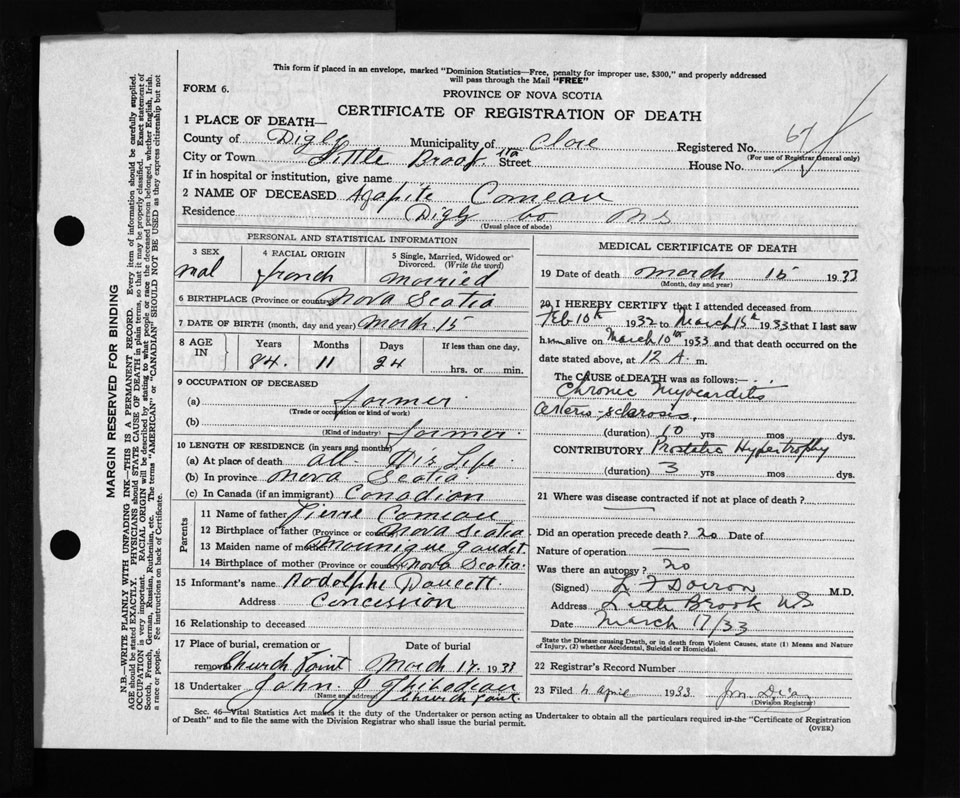 This form if placed in an envelope, marked "Dominion Statistics—Free, penalty for improper use, $300," and properly addressed
will pass through the Mail "FREE"
FORM 6.
PROVINCE OF NOVA SCOTIA
CERTIFICATE OF REGISTRATION OF DEATH
1 PLACE OF DEATH—
County of Digby Municipality of Clare Registered No. 67
(For use of Registrar General only)
City or Town Little Brook Sta Street House No.
If in hospital or institution, give name
2 NAME OF DECEASED Agapite Comeau
Residence Digby Co NS
(Usual place of abode)
PERSONAL AND STATISTICAL INFORMATION
3 SEX 4 RACIAL ORIGIN 5 Single, Married, Widowed or Divorced. (Write the word)
mal french married
6 BIRTHPLACE (Province or country) Nova Scotia
7 DATE OF BIRTH (month, day and year) March 15
8 AGE IN Years Months Days If less than one day.
84. 11 24 hrs. or min.
9 OCCUPATION OF DECEASED
(a) farmer
(Trade or occupation or kind of work)
(b) farmer
(Kind of industry)
10 LENGTH OF RESIDENCE (in years and months)
(a) At place of death all His Life
(b) In province Nova Scotia
(c) In Canada (if an immigrant) Canadian
Parents
11 Name of father Pierre Comeau
12 Birthplace of father (Province or country) Nova Scotia
13 Maiden name of mother Mounique Gaudet
14 Birthplace of mother (Province or country) Nova Scotia
15 Informant's name Rodolphe Doucett
Address Concession
16 Relationship to deceased
17 Place of burial, cremation or removal Date of burial
Church Point March 17. 1933
18 Undertaker John J Thibodeau
(Name and address) Church Point
MEDICAL CERTIFICATE OF DEATH
19 Date of death March 15 1933
(Month, day and year)
20 I HEREBY CERTIFY that I attended deceased from
Feb 10th 1932 to March 15th 1933 that I last saw
him alive on March 10th 1933 and that death occurred on the
date stated above, at 12 A. m.
The CAUSE OF DEATH was as follows:
Chronic Myocarditis
Arterio-sclerosis,
(duration) 10 yrs mos dys.
CONTRIBUTORY Prostatic Hypertrophy
(duration) 3 yrs mos dys.
21 Where was disease contracted if not at place of death?
Did an operation precede death? no Date of
Nature of operation —
Was there an autopsy? no
(Signed) L F Doiron M.D.
Address Little Brook NS
Date March 17/33
State the Disease causing Death, or in death from Violent Causes, state (1) Means and Nature of Injury, (2) whether Accidental, Suicidal or Homicidal.
22 Registrar's Record Number
23 Filed 4 April 1933
(Division Registrar)
Sec. 46—Vital Statistics Act makes it the duty of the Undertaker or person acting as Undertaker to obtain all the particulars required in the "Certificate of Registration
of Death" and to file the same with the Division Registrar who shall issue the burial permit.
(OVER)
MARGIN RESERVED FOR BINDING
N.B.—WRITE PLAINLY WITH UNFADING INK—THIS IS A PERMANENT RECORD. Every item of information should be carefully supplied.
AGE should be stated EXACTLY. PHYSICIANS should STATE CAUSE OF DEATH in plain terms, so that it may be properly classified. Exact statement of
OCCUPATION is very important. RACIAL ORIGIN will be described by stating to what people or race the deceased person belonged, whether English, Irish,
Scotch, French, German, Russian, Ruthenian, etc. The terms "AMERICAN" or "CANADIAN" SHOULD NOT BE USED as they express citizenship but not
a race or people. See instructions on back of Certificate.